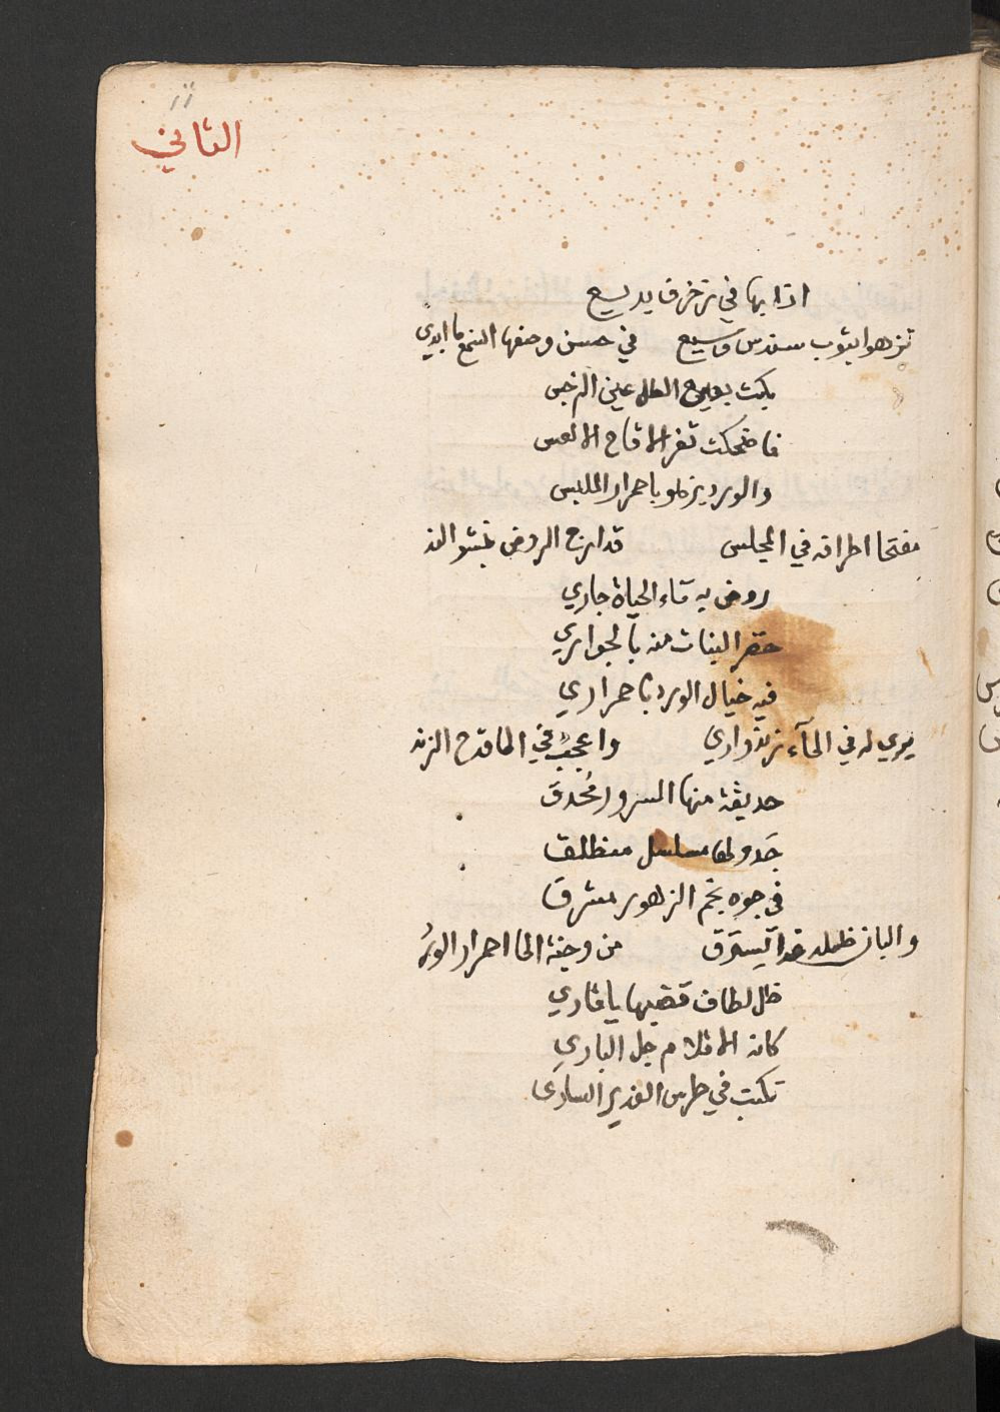 ١١
الثاني
اذا بها في زخرف بديع
تزهوا بثوب سندس وسيع في حسن وصفها السمع ما ابدي
بكت بدمع الطل عين النرجس
فاضحكت ثغر الاقاح الالعس
والورد يزهو باحمرار الملبس
مفتحا اطرافه في المجلس قد ارج الروض بنشر الند
روض به مآء الحياة جاري
خضر النبات منه بالجواري
فيه خيال الورد باحمراري
يري له في المآء زند واري واعجب في الما قدح الزند
حديقة منها السرور محدق
جدولها مسلسل منطلق
في جوه نجم الزهور مشرق
والبان ظله غدا يسترق من وجنة الما احمرار الورد
ظل لطاف قضبها يا قاري
كانه الاقلام جل الباري
تكتب في طرس الغدير الساري